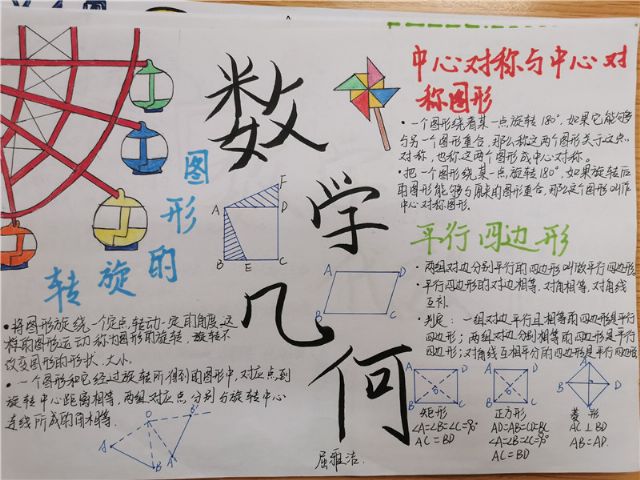 数
学
几
何
图
形
的
旋
转
将图形旋绕一个定点转动一定的角度,这
样的图形运动称为图形的旋转,旋转不
改变图形的形状、大小。
一个图形和它经过旋转所得到的图形中,对应点到
旋转中心距离相等,两组对应点分别与旋转中心
连线所成的角相等。
A
B
E
C
D
F
A
D
B
C
O
A
B
A
B
中心对称与中心对
称图形
一个图形绕着某一点旋转180°,如果它能够
与另一个图形重合,那么称这两个图形关于这点
对称,也称这两个图形成中心对称。
把一个图形绕某一点旋转180°,如果旋转后
的图形能够与原来的图形重合,那么这个图形叫作
中心对称图形.
平行四边形
两组对边分别平行的四边形叫做平行四边形
平行四边形的对边相等,对角相等,对角线
互补
判定:一组对边平行且相等的四边形是平行
四边形;两组对边分别相等的四边形是平行
四边形;对角线互相平分的四边形是平行四边形
A D
B C
矩形
∠A=∠B=∠C=90°
AC=BD
A D
B C
正方形
AD=AB=CD=BC
∠A=∠B=∠C=90°
AC=BD
A
B D
C
菱形
AC⊥BD
AB=AD.
屈雅洁.